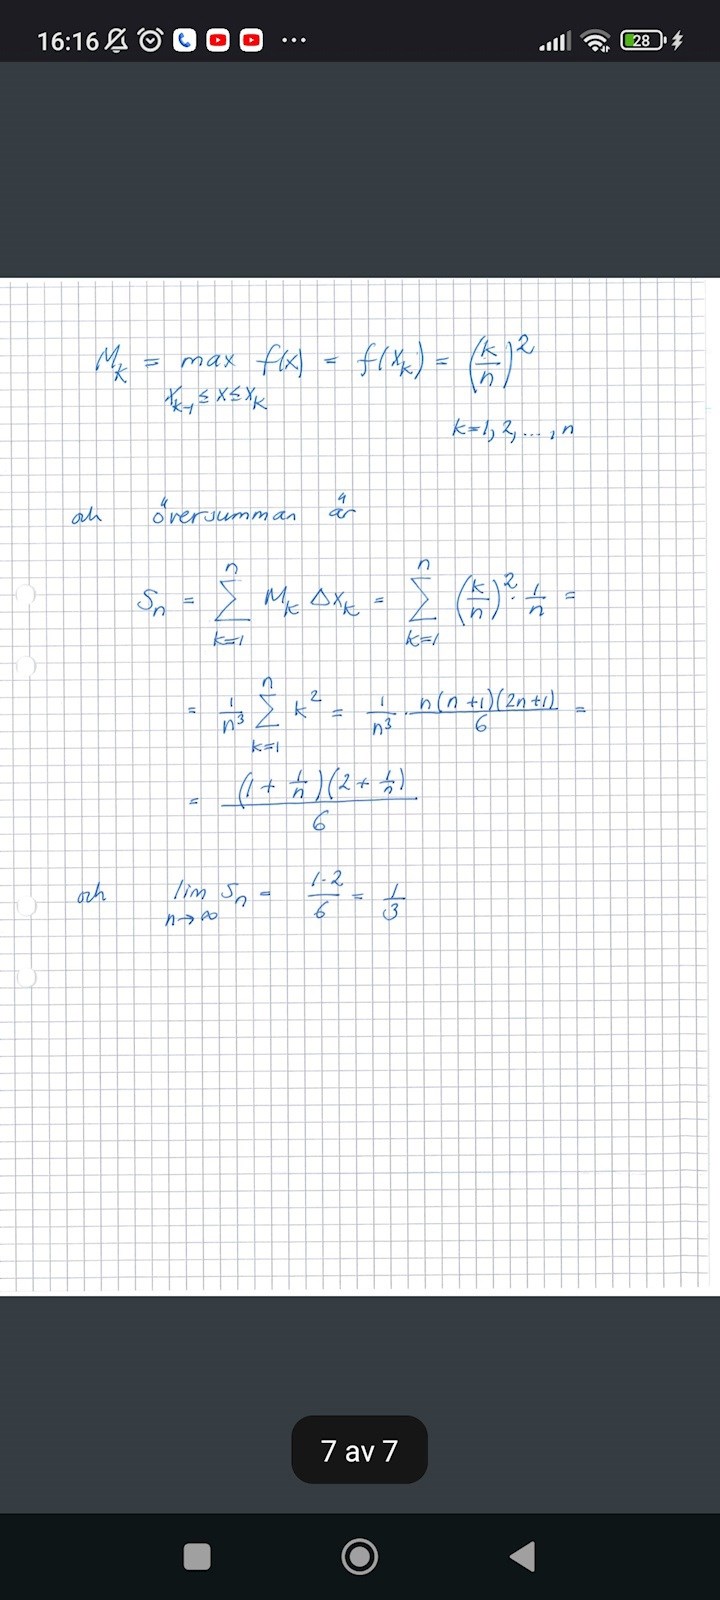 16:16 ... 28
M_k = max f(x) = f(x_k) = (k/n)^2
x_{k-1} ≤ x ≤ x_k
k=1, 2, ..., n
och översumman är
S_n = Σ_{k=1}^{n} M_k Δx_k = Σ_{k=1}^{n} (k/n)^2 · 1/n =
= 1/n^3 Σ_{k=1}^{n} k^2 = 1/n^3 · n(n+1)(2n+1)/6 =
= (1 + 1/n)(2 + 1/n)/6
och lim_{n→∞} S_n = 1·2/6 = 1/3
7 av 7